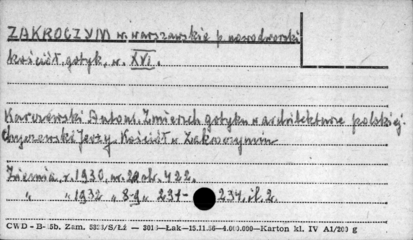 ZAKROCZYM w. warszawskie p. nowodworski
kościół, gotyk, w. XVI.
Karczewski Antoni. Zmierzch gotyku w architekturze polskiej.
Jerzy. Kościół w Zakroczymiu
Ziemia. r. 1930. nr. str. 422.
" " 1932 " 8-9 " 231- 234. il. 2.
CWD - B- Zam. /S/Łź — Łak—15.11.56—4.000.000—Karton kl. IV A1/200 g